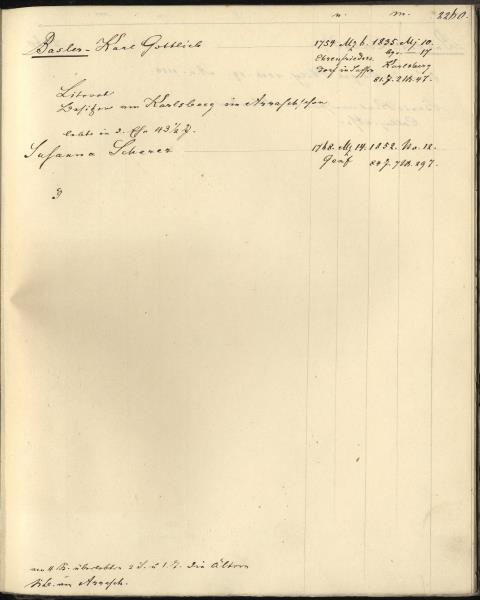 n. m. 2260.
Basler - Karl Gottlieb 1754. Mz 6. 1835. Mj 10.
Ehrenfrieders- 17
dorf in Sachsen Karlsberg
81 J. 2 M. 4 T.
Litorat
Besitzer von Karlsberg in Arrasch'schen
lebte in 2. Ehe 43½ J.
Susanna Scherer 1768. Mz 14. 1852. No. 12.
Genf 84 J. 7 M. 29 T.
von 4 K. überlebten 2 S. u 1 T. die Ältern
Kb. von Arrasch.